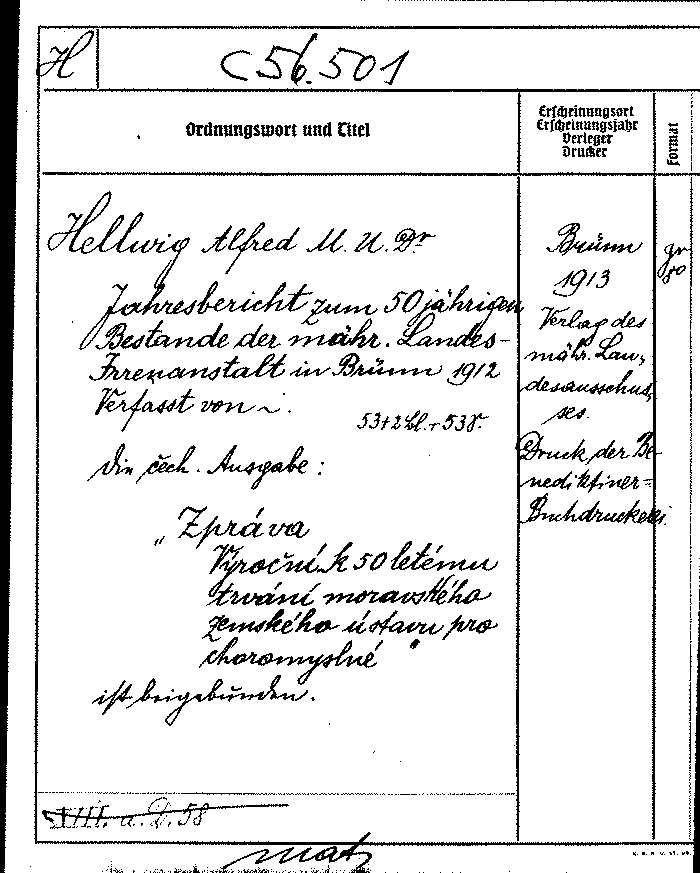 H
C 56.501
Ordnungswort und Titel
Erscheinungsort
Erscheinungsjahr
Verleger
Drucker
Format
Hellwig Alfred M. U. Dr
Jahresbericht zum 50 jährigen
Bestande der mähr. Landes-
Irrenanstalt in Brünn 1912
Verfasst von ~.
53+2 Bl. + 53 S.
Die čech. Ausgabe:
„Zpráva
Výroční k 50 letému
trvání moravského
zemského ústavu pro
choromyslné"
ist beigebunden.
Brünn
1913
Verlag des
mähr. Lan-
desausschus-
ses.
Druck der Be-
nediktiner=
Buchdruckerei.
gr
8°
XIII. a. D. 58